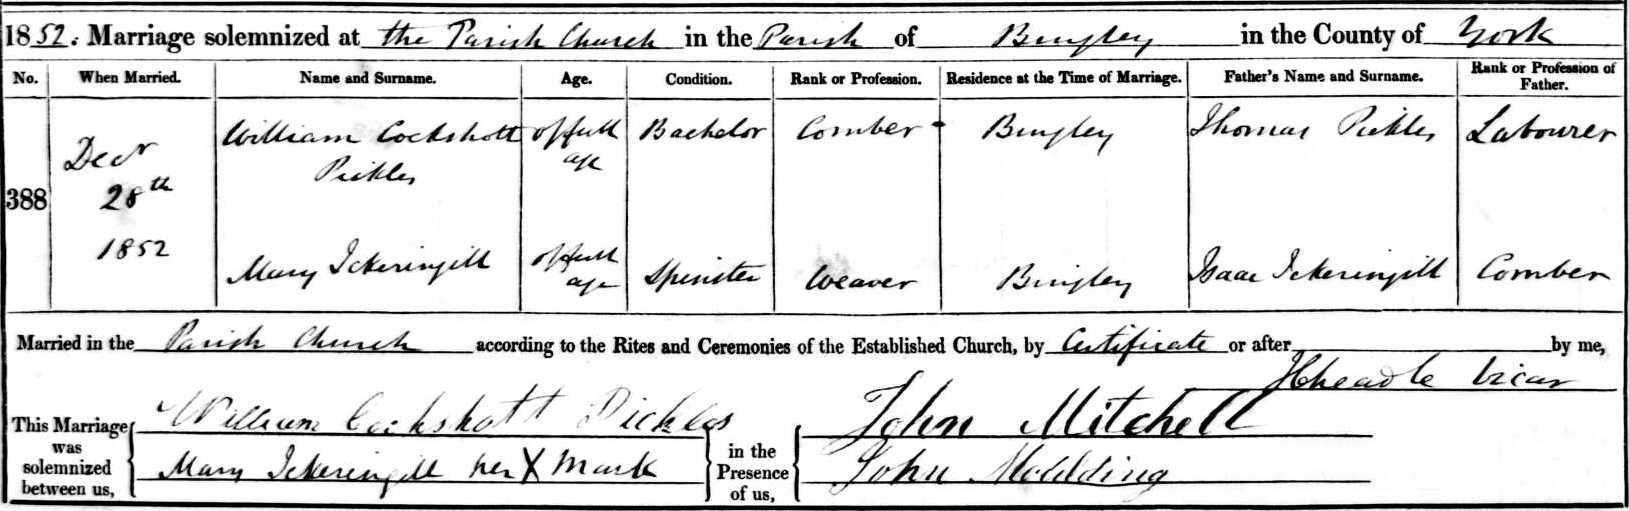 1852. Marriage solemnized at the Parish Church in the Parish of Bingley in the County of York
No. When Married. Name and Surname. Age. Condition. Rank or Profession. Residence at the Time of Marriage. Father's Name and Surname. Rank or Profession of Father.
388 Decr 28th 1852
William Cockshott Pickles of full age Bachelor Comber Bingley Thomas Pickles Labourer
Mary Ickeringill of full age Spinster Weaver Bingley Isaac Ickeringill Comber
Married in the Parish Church according to the Rites and Ceremonies of the Established Church, by Certificate or after by me,
Cheadle Vicar
This Marriage was solemnized between us, William Cockshott Pickles in the Presence of us, John Mitchell
Mary Ickeringill her X mark John